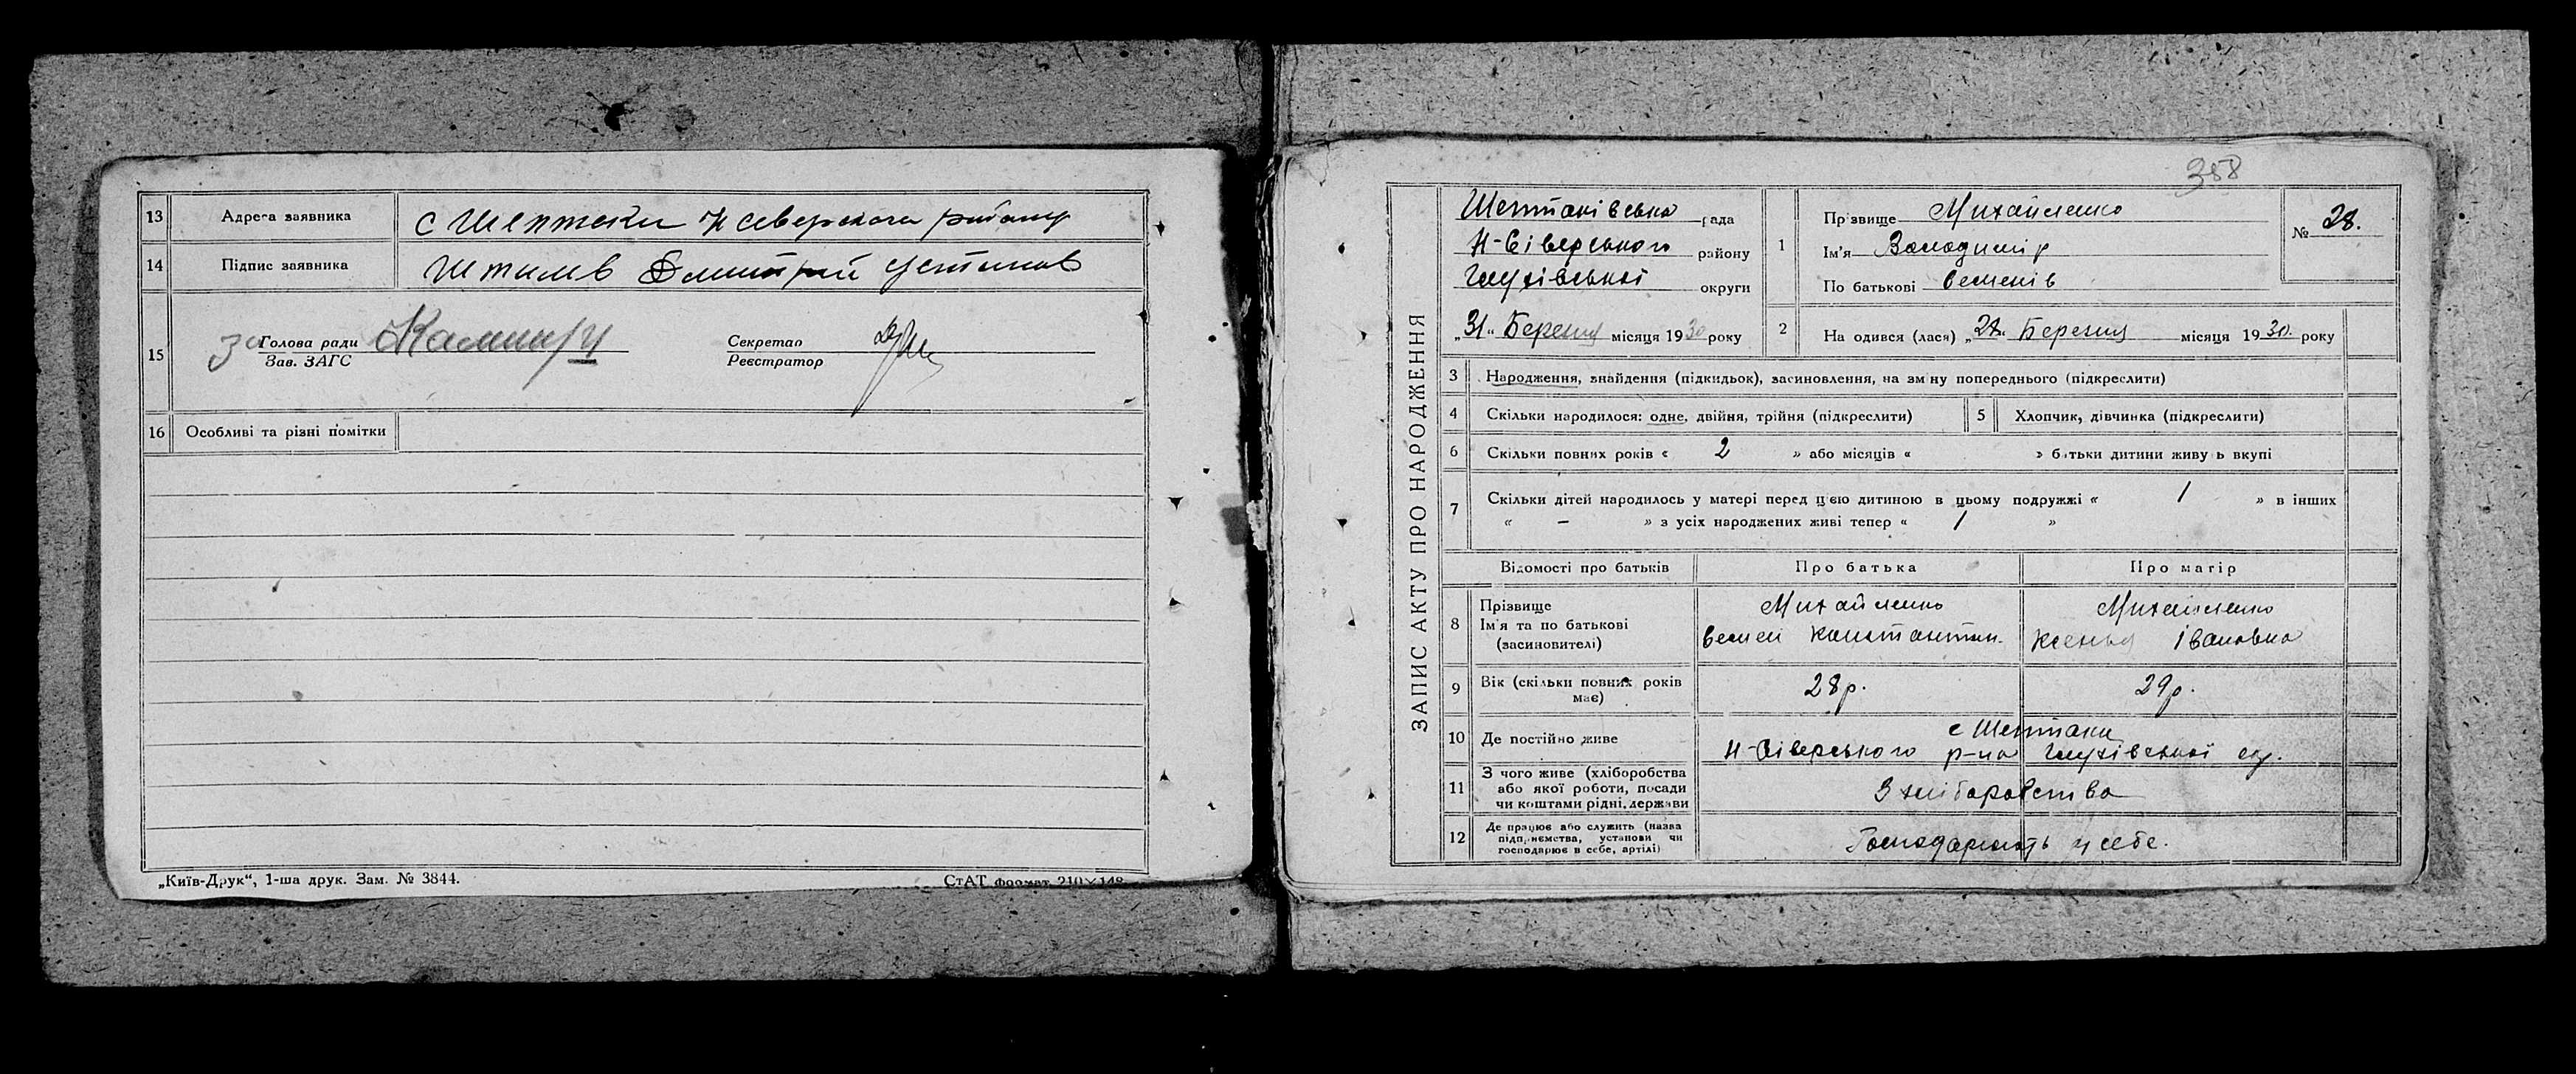 13 Адреса заявника с Шептаки Н северского району
14 Підпис заявника Дмитрий Устинов
15 За Голова ради
Зав. ЗАГС
Секретар
Реєстратор
16 Особливі та різні помітки
„Київ-Друк“, 1-ша друк. Зам. № 3844.
СтАТ формат 210×148
358
ЗАПИС АКТУ ПРО НАРОДЖЕННЯ
Шептаківська рада
Н-Сіверського району
Глухівської округи
„31„ Березня місяця 1930 року
1 Прізвище Михайленко
Ім'я Володимір
По батькові Семенів
№ 28.
2 На одився (лася) „28„ Березня місяця 1930. року
3 Народження, знайдення (підкидьок), засиновлення, на зміну попереднього (підкреслити)
4 Скільки народилося: одне, двійня, трійня (підкреслити)
5 Хлопчик, дівчинка (підкреслити)
6 Скільки повних років « 2 » або місяців « » батьки дитини живуть вкупі
7 Скільки дітей народилось у матері перед цією дитиною в цьому подружжі « 1 » в інших
« – » з усіх народжених живі тепер « 1 »
Відомості про батьків Про батька Про матір
8 Прізвище
Ім'я та по батькові
(засиновителі)
Михайленко
Семен Константин.
Михайленко
Ксенья Івановна
9 Вік (скільки повних років
має)
28р. 29р.
10 Де постійно живе
с Шептаки
Н-Сіверського р-на Глухівської ок.
11 З чого живе (хліборобства
або якої роботи, посади
чи коштами рідні, держави
З хліборобства
12 Де працює або служить (назва
підприємства, установи чи
господарює в себе, артілі)
Господарюють у себе.